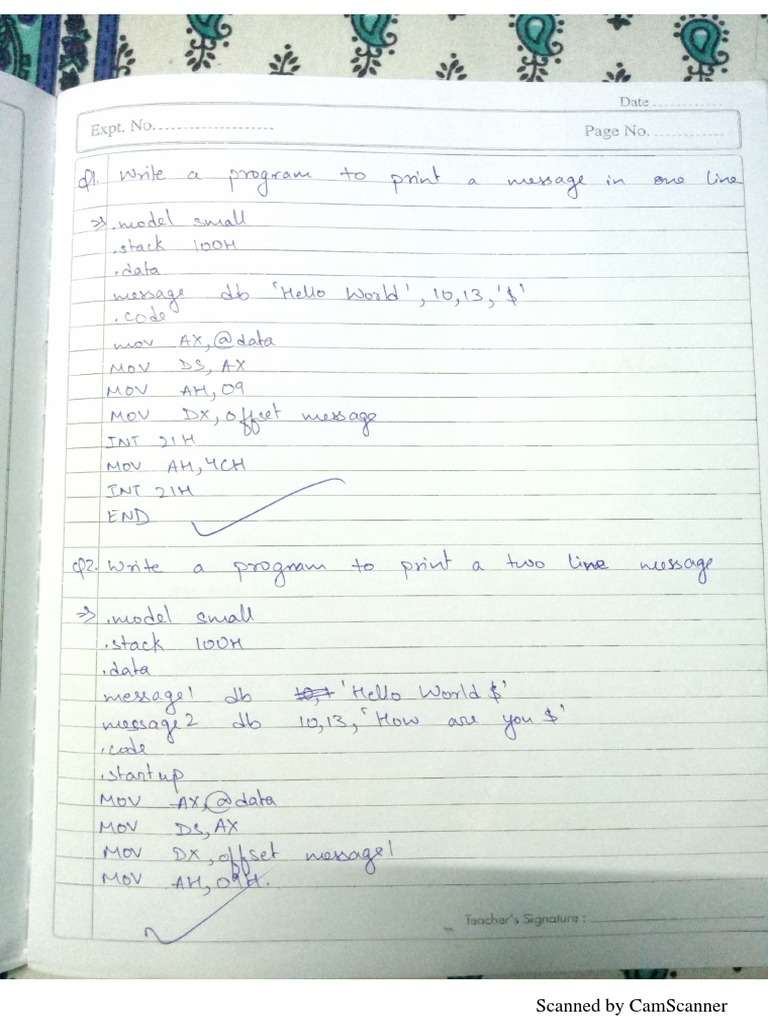 Date ............
Expt. No. ....................
Page No. ............
Q1. Write a program to print a message in one line
=> .model small
.stack 100H
.data
message db 'Hello World', 10,13,'$'
.code
mov AX,@data
MOV DS, AX
MOV AH, 09
MOV DX, offset message
INT 21H
MOV AH, 4CH
INT 21H
END
Q2. Write a program to print a two line message
=> .model small
.stack 100H
.data
message1 db 'Hello World $'
message2 db 10,13, 'How are you $'
.code
.startup
MOV AX,@data
MOV DS, AX
MOV DX, offset message1
MOV AH, 09H.
Teacher's Signature : ....................
Scanned by CamScanner